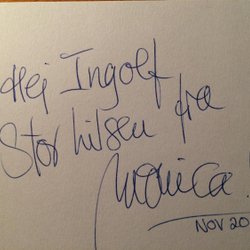 Hej Ingolf
Stor hilsen fra
Monica
NOV 20